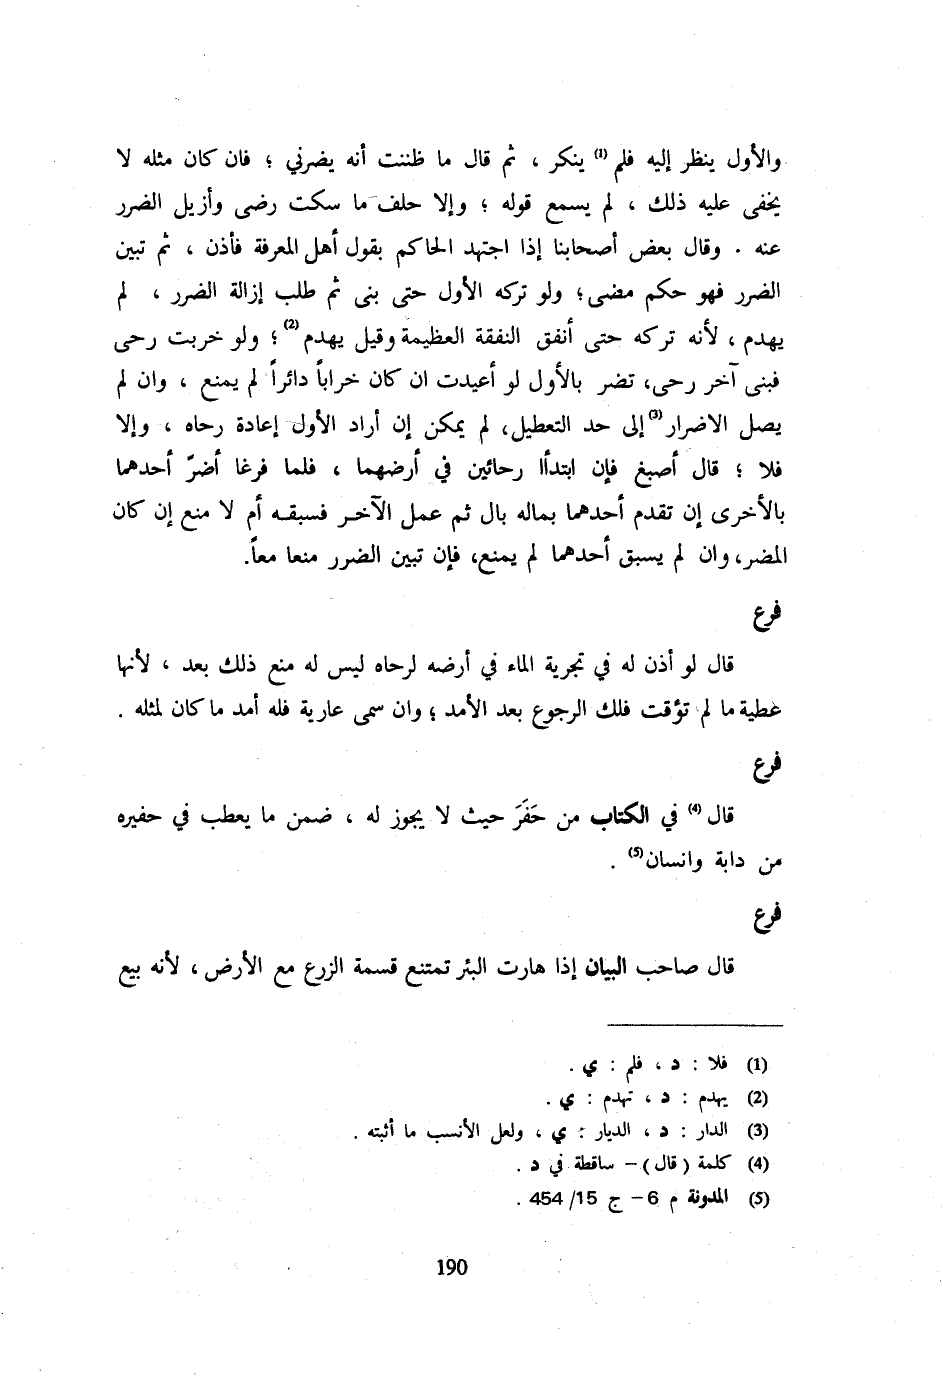 والأول ينظر إليه فلم(1) ينكر ، ثم قال ما ظننت أنه يضرني ؛ فان كان مثله لا
يخفى عليه ذلك ، لم يسمع قوله ؛ وإلا حلف ما سكت رضى وأزيل الضرر
عنه . وقال بعض أصحابنا إذا اجتهد الحاكم بقول أهل المعرفة فأذن ، ثم تبين
الضرر فهو حكم مضى؛ ولو تركه الأول حتى بنى ثم طلب إزالة الضرر ، لم
يهدم ، لأنه تركه حتى أنفق النفقة العظيمة وقيل يهدم(2) ؛ ولو خربت رحى
فبنى آخر رحى، تضر بالأول لو أعيدت ان كان خراباً دائراً لم يمنع ، وان لم
يصل الاضرار(3) إلى حد التعطيل، لم يمكن إن أراد الأول إعادة رحاه ، وإلا
فلا ؛ قال أصبغ فإن ابتدأا رحائين في أرضهما ، فلما فرغا أضرّ أحدهما
بالأخرى إن تقدم أحدهما بماله بال ثم عمل الآخر فسبقه أم لا منع إن كان
المضر، وان لم يسبق أحدهما لم يمنع، فإن تبين الضرر منعا معاً.
فرع
قال لو أذن له في تجرية الماء في أرضه لرحاه ليس له منع ذلك بعد ، لأنها
عطية ما لم تؤقت فلك الرجوع بعد الأمد ؛ وان سمى عارية فله أمد ما كان لمثله .
فرع
قال(4) في الكتاب من حَفَرَ حيث لا يجوز له ، ضمن ما يعطب في حفيره
من دابة وانسان(5) .
فرع
قال صاحب البيان إذا هارت البئر تمتنع قسمة الزرع مع الأرض ، لأنه بيع
(1) فلا : د ، فلم : ي .
(2) يهدم : د ، تهدم : ي .
(3) الدار : د ، الديار : ي ، ولعل الأنسب ما أثبته .
(4) كلمة ( قال ) – ساقطة في د .
(5) المدونة م 6 – ج 15/ 454 .
190